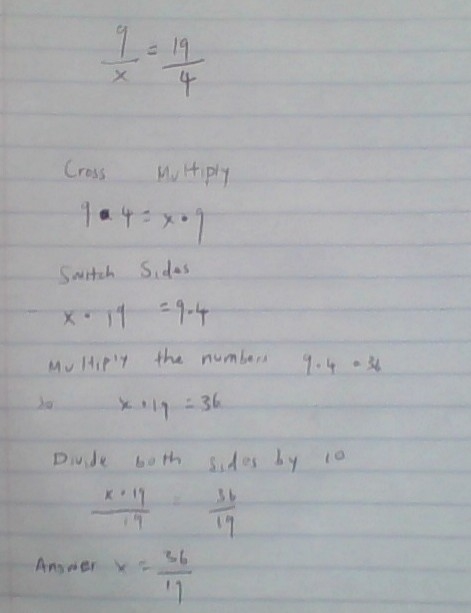 9/x = 19/4
Cross Multiply
9 • 4 = x • 9
Switch Sides
x • 19 = 9.4
Multiply the numbers 9.4 = 36
so x • 19 = 36
Divide both sides by 10
x • 19/19 = 36/19
Answer x = 36/19